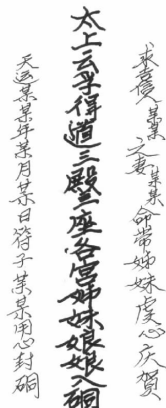 求意人某某之妻某某命带姊妹虔心庆贺
太上云孚得道三殿三座各宫姊妹娘娘入硐
天运某某年某月某日符子某某用心封硐